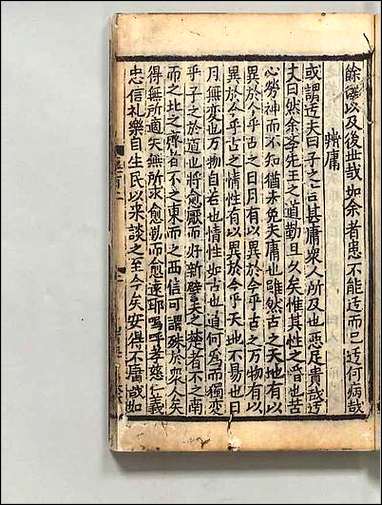 餘澤以及後世哉如余者患不能迂而已迂何病哉
辨庸
或謂迂夫曰子之言甚庸衆人所及也惡足貴哉迂
夫曰然余學先王之道勤且久矣惟其性之昏也苦
心勞神而不知猶未免夫庸也雖然古之天地有以
異於今乎古之日月有以異於今乎古之萬物有以
異於今乎古之情性有以異於今乎天地不易也日
月無變也万物自若也情性如古也道何爲而獨變
乎子之於道也將愈厭而好新譬夫之楚者不之南
而之北之齊者不之東而之西信可謂殊於衆人矣
得無所適失無所求愈勤而愈遠耶嗚呼孝慈仁義
忠信礼樂自生民以來談之至今矣安得不庸哉如